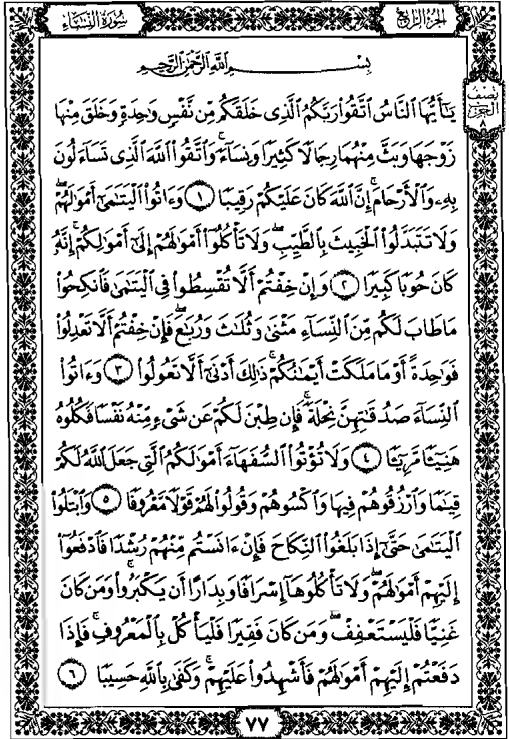 سُورَةُ النِّسَاءِ
الجُزءُ الرَّابِعُ
نِصْف
الحِزْب
٨
بِسْمِ اللَّهِ الرَّحْمَٰنِ الرَّحِيمِ
يَٰٓأَيُّهَا ٱلنَّاسُ ٱتَّقُوا۟ رَبَّكُمُ ٱلَّذِى خَلَقَكُم مِّن نَّفْسٍ وَٰحِدَةٍ وَخَلَقَ مِنْهَا
زَوْجَهَا وَبَثَّ مِنْهُمَا رِجَالًا كَثِيرًا وَنِسَآءً ۚ وَٱتَّقُوا۟ ٱللَّهَ ٱلَّذِى تَسَآءَلُونَ
بِهِۦ وَٱلْأَرْحَامَ ۚ إِنَّ ٱللَّهَ كَانَ عَلَيْكُمْ رَقِيبًا ١ وَءَاتُوا۟ ٱلْيَتَٰمَىٰٓ أَمْوَٰلَهُمْ ۖ
وَلَا تَتَبَدَّلُوا۟ ٱلْخَبِيثَ بِٱلطَّيِّبِ ۖ وَلَا تَأْكُلُوٓا۟ أَمْوَٰلَهُمْ إِلَىٰٓ أَمْوَٰلِكُمْ ۚ إِنَّهُۥ
كَانَ حُوبًا كَبِيرًا ٢ وَإِنْ خِفْتُمْ أَلَّا تُقْسِطُوا۟ فِى ٱلْيَتَٰمَىٰ فَٱنكِحُوا۟
مَا طَابَ لَكُم مِّنَ ٱلنِّسَآءِ مَثْنَىٰ وَثُلَٰثَ وَرُبَٰعَ ۖ فَإِنْ خِفْتُمْ أَلَّا تَعْدِلُوا۟
فَوَٰحِدَةً أَوْ مَا مَلَكَتْ أَيْمَٰنُكُمْ ۚ ذَٰلِكَ أَدْنَىٰٓ أَلَّا تَعُولُوا۟ ٣ وَءَاتُوا۟
ٱلنِّسَآءَ صَدُقَٰتِهِنَّ نِحْلَةً ۚ فَإِن طِبْنَ لَكُمْ عَن شَىْءٍ مِّنْهُ نَفْسًا فَكُلُوهُ
هَنِيٓـًٔا مَّرِيٓـًٔا ٤ وَلَا تُؤْتُوا۟ ٱلسُّفَهَآءَ أَمْوَٰلَكُمُ ٱلَّتِى جَعَلَ ٱللَّهُ لَكُمْ
قِيَٰمًا وَٱرْزُقُوهُمْ فِيهَا وَٱكْسُوهُمْ وَقُولُوا۟ لَهُمْ قَوْلًا مَّعْرُوفًا ٥ وَٱبْتَلُوا۟
ٱلْيَتَٰمَىٰ حَتَّىٰٓ إِذَا بَلَغُوا۟ ٱلنِّكَاحَ فَإِنْ ءَانَسْتُم مِّنْهُمْ رُشْدًا فَٱدْفَعُوٓا۟
إِلَيْهِمْ أَمْوَٰلَهُمْ ۖ وَلَا تَأْكُلُوهَآ إِسْرَافًا وَبِدَارًا أَن يَكْبَرُوا۟ ۚ وَمَن كَانَ
غَنِيًّا فَلْيَسْتَعْفِفْ ۖ وَمَن كَانَ فَقِيرًا فَلْيَأْكُلْ بِٱلْمَعْرُوفِ ۚ فَإِذَا
دَفَعْتُمْ إِلَيْهِمْ أَمْوَٰلَهُمْ فَأَشْهِدُوا۟ عَلَيْهِمْ ۚ وَكَفَىٰ بِٱللَّهِ حَسِيبًا ٦
٧٧